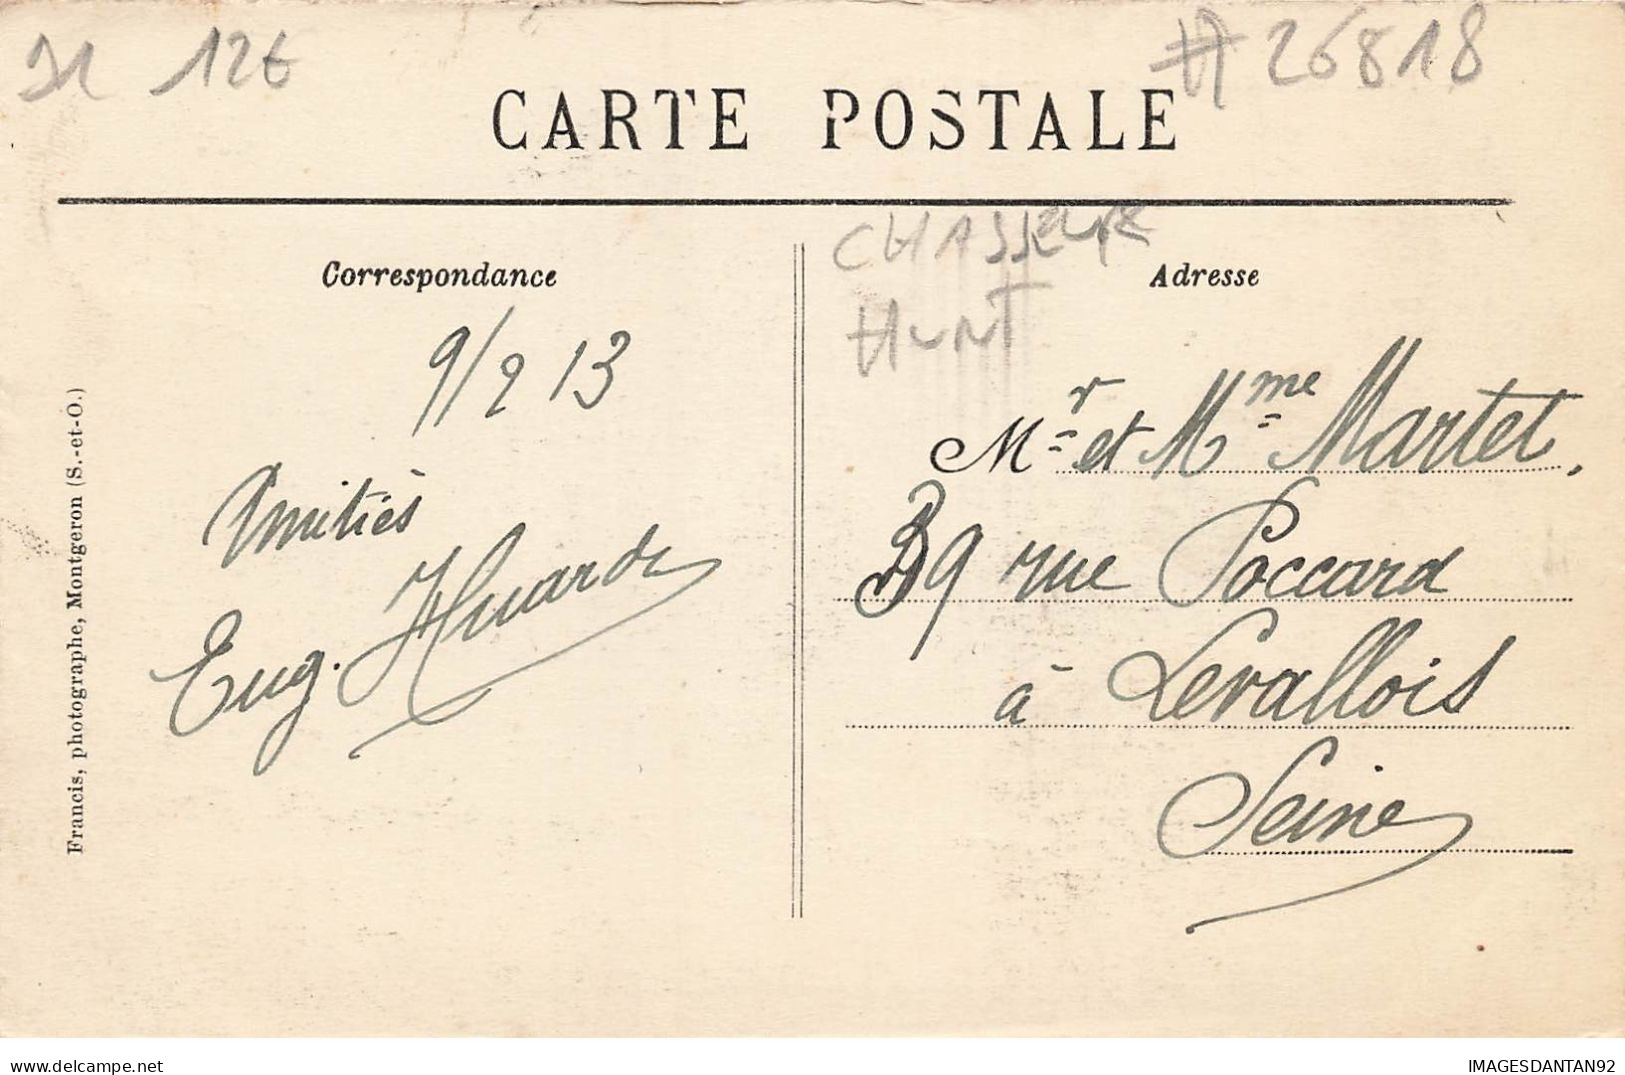 126
# 26818
CARTE POSTALE
CHASSEUR
HUNT
Correspondance
Adresse
9/9 13
Amitiés
Eug. Huard
Mr et Mme Martet,
39 rue Poccard
à Levallois
Seine
Francis, photographe, Montgeron (S.-et-O.)
delcampe.net
IMAGESDANTAN92